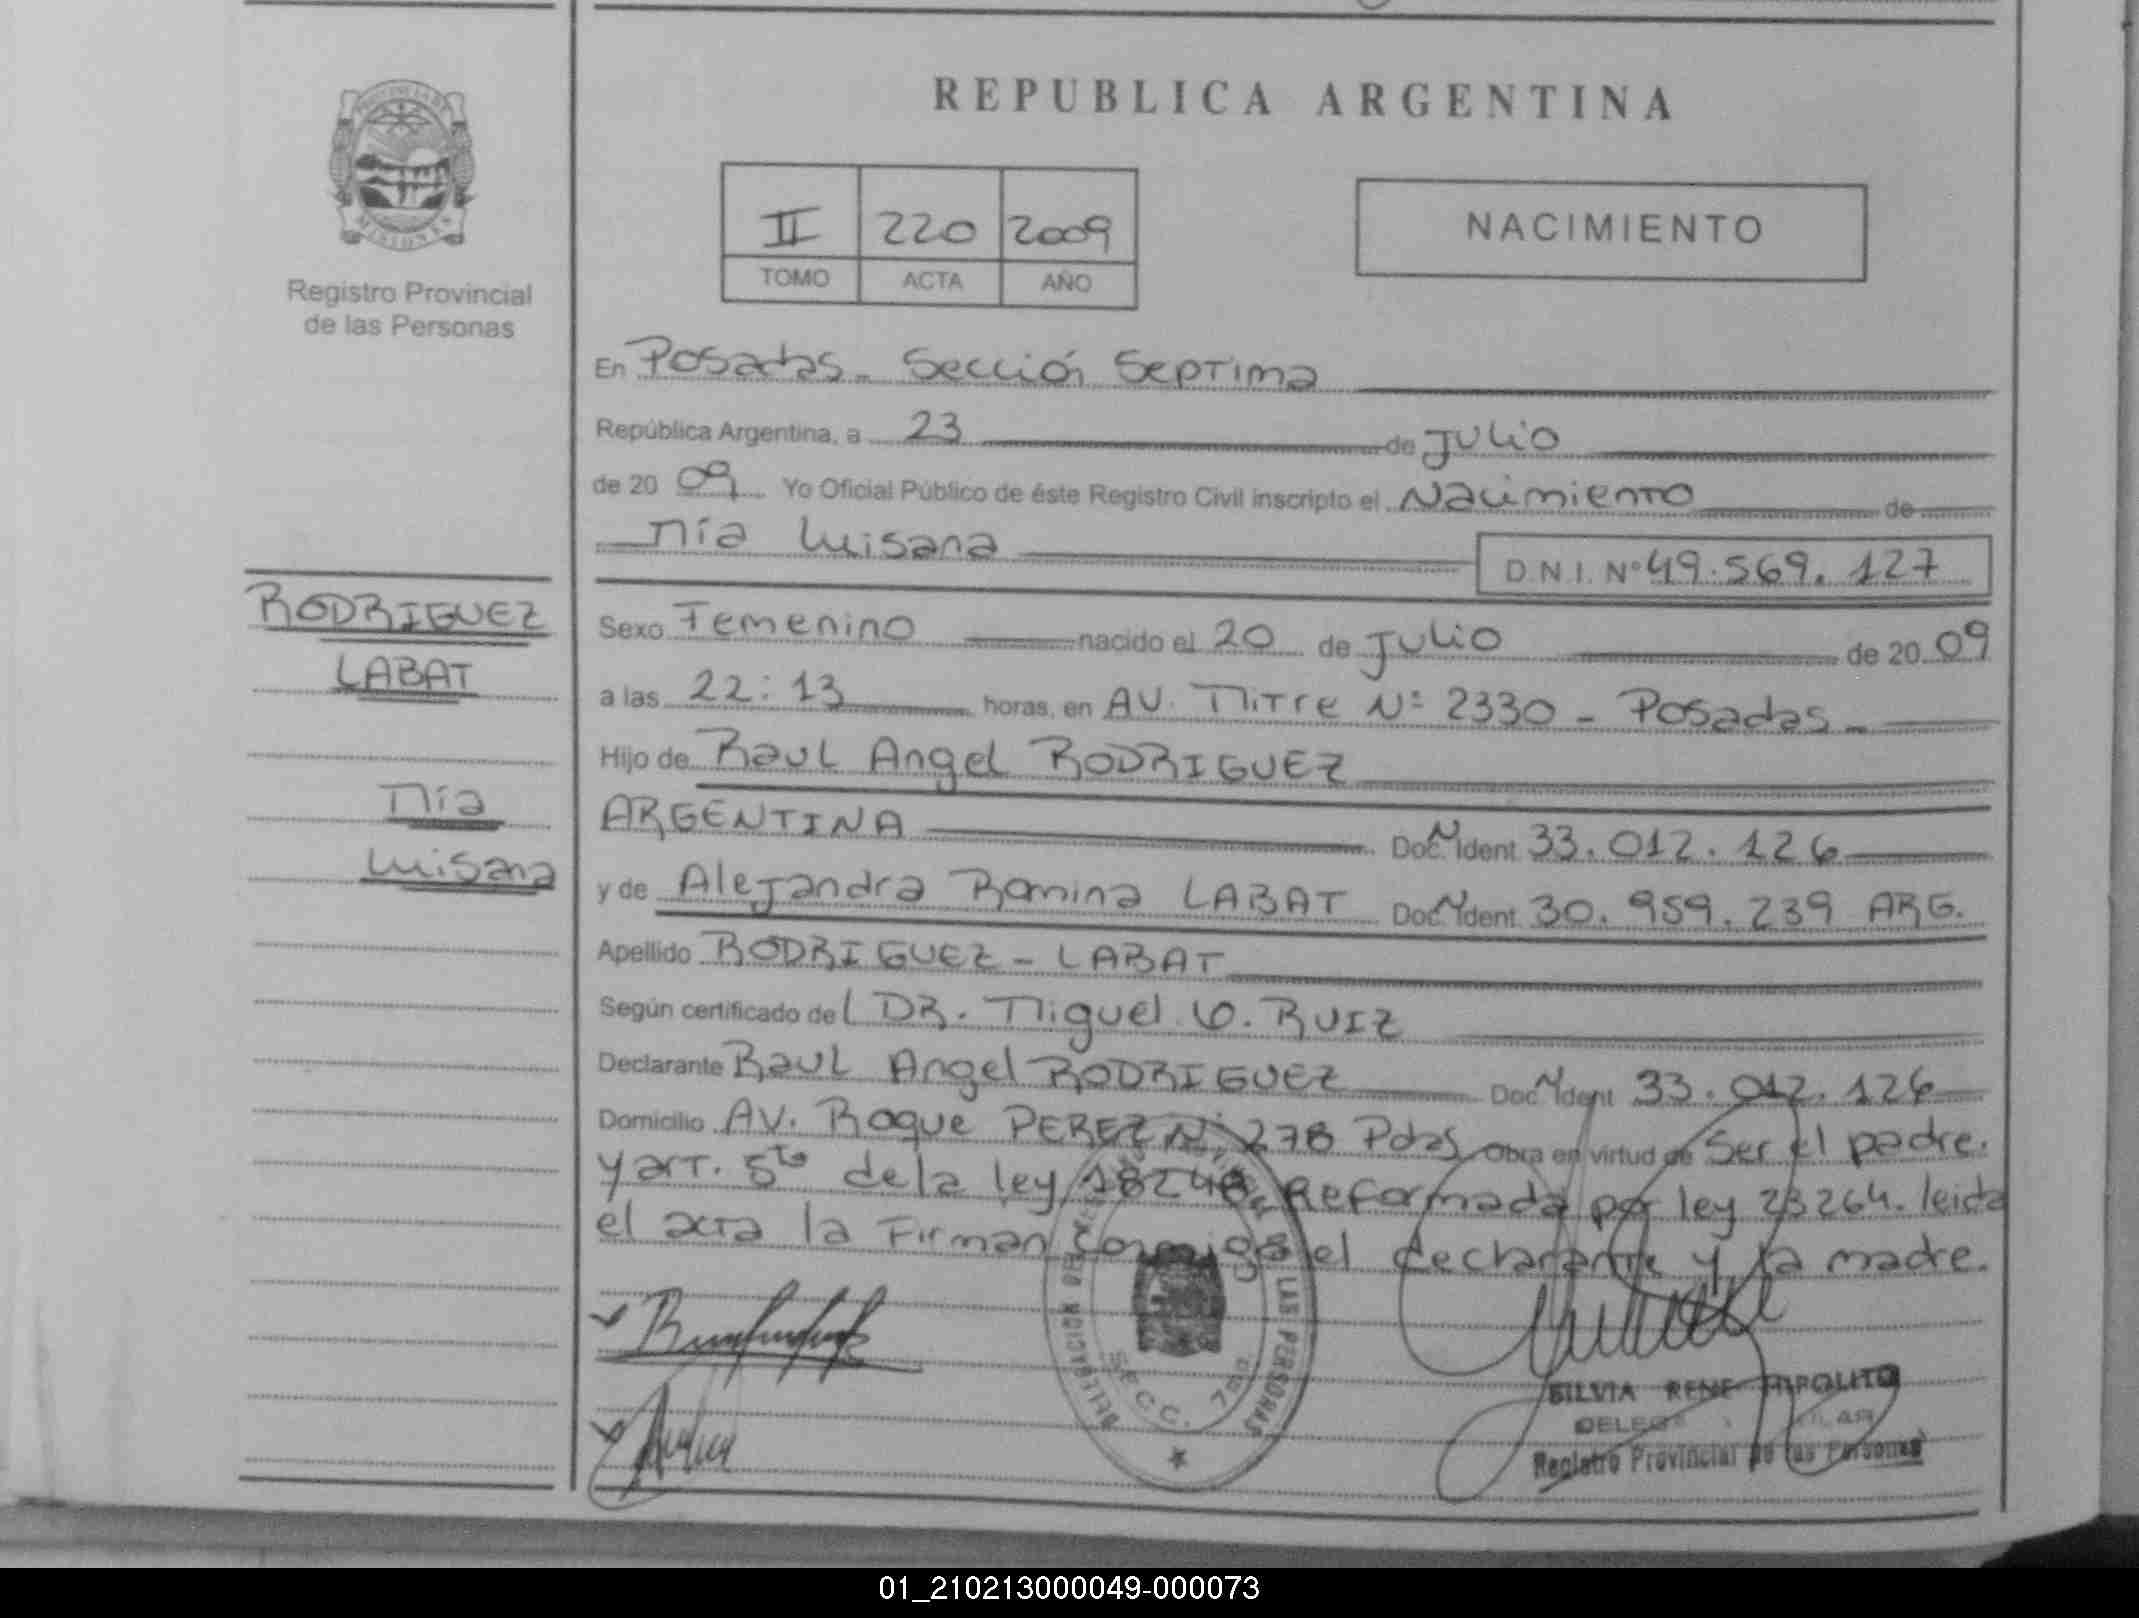 REPUBLICA ARGENTINA
PROVINCIA DE
MISIONES
Registro Provincial
de las Personas
II 220 2009
TOMO ACTA AÑO
NACIMIENTO
En Posadas - Sección Septima
República Argentina, a 23 de Julio
de 20 09 Yo Oficial Público de éste Registro Civil inscripto el Nacimiento de
Mía Luisana
D.N.I. Nº 49.569.127
RODRIGUEZ
LABAT
Mía
Luisana
Sexo Femenino nacido el 20 de Julio de 20 09
a las 22:13 horas, en AV. Mitre Nº 2330 - Posadas -
Hijo de Raul Angel RODRIGUEZ
ARGENTINA Doc. Ident. 33.012.126
y de Alejandra Romina LABAT Doc. Ident. 30.959.239 ARG.
Apellido RODRIGUEZ - LABAT
Según certificado del DR. Miguel RUIZ
Declarante Raul Angel RODRIGUEZ Doc. Ident. 33.012.126
Domicilio AV. Roque PEREZ Nº 278 Pdas Obra en virtud de Ser el padre.
y art. 5to de la ley 18248 Reformada por ley 23264. leida
el acta la Firman conmigo el declarante y la madre.
DELEGACION DE LAS PERSONAS
SECC. 7ma
SILVIA RENE HIPOLITO
Registro Provincial de las Personas
01_210213000049-000073